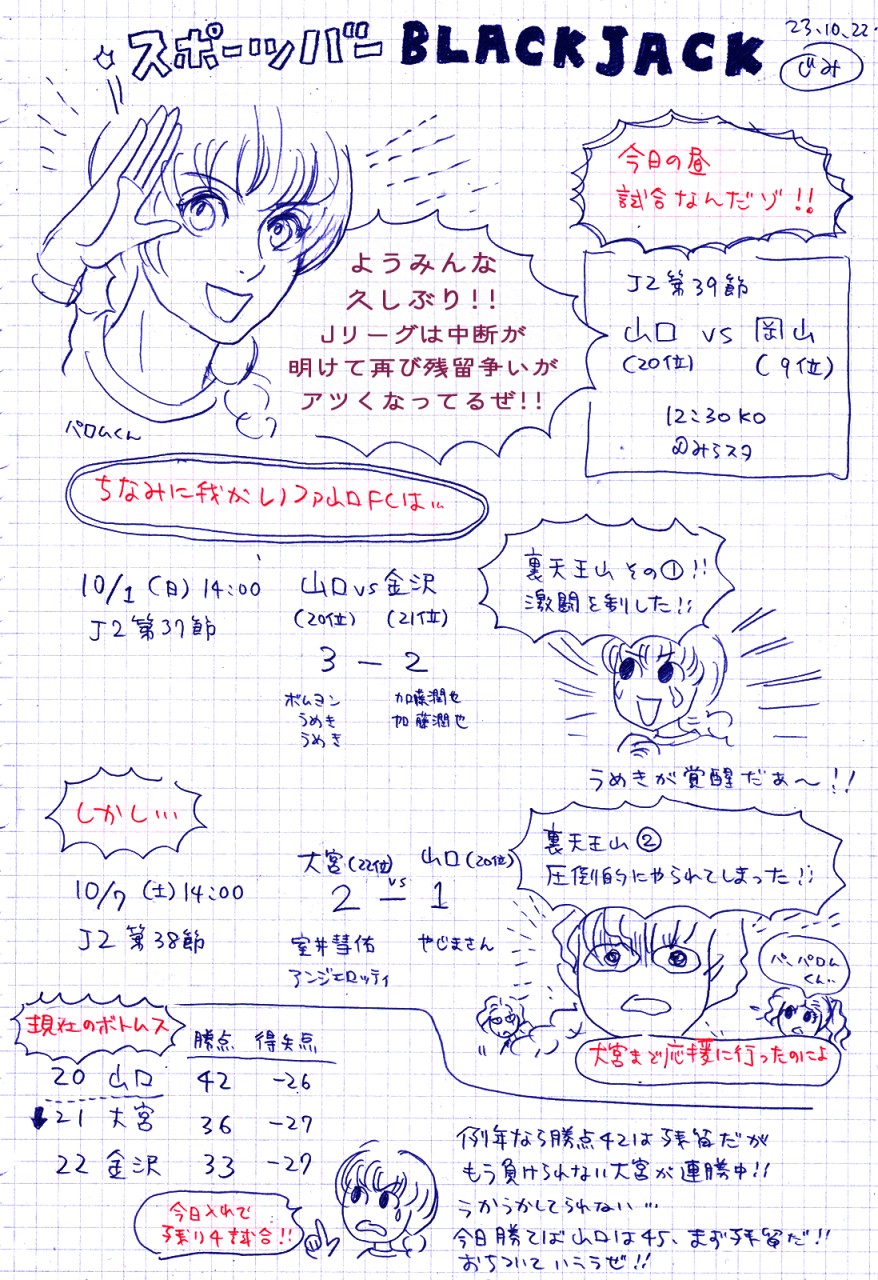 スポーツバー BLACK JACK
23.10.22.
ごみ
今日の昼
試合なんだゾ!!
J2第39節
山口 vs 岡山
(20位) (9位)
12:30KO
@みらスタ
ようみんな
久しぶり!!
Jリーグは中断が
明けて再び残留争いが
アツくなってるぜ!!
パロムくん
ちなみに我がレノファ山口FCは…
10/1(日)14:00
J2第37節
山口vs金沢
(20位) (21位)
3 - 2
ボムヨン 加藤潤也
うめき 加藤潤也
うめき
裏天王山その①!!
激闘を制した!!
うめきが覚醒だぁ~!!
しかし…
10/7(土)14:00
J2 第38節
大宮(22位) vs 山口(20位)
2 - 1
室井彗佑 やじまさん
アンジェロッティ
裏天王山②
圧倒的にやられてしまった!!
パ、パロム
くん…
大宮まで応援に行ったのによ
現在のボトムス
勝点 得失点
20 山口 42 -26
21 大宮 36 -27
22 金沢 33 -27
今日入れて
残り4試合!!
例年なら勝点42は残留だが
もう負けられない大宮が連勝中!!
うかうかしてられない…
今日勝てば山口は45、まず残留だ!!
おちついていこうぜ!!